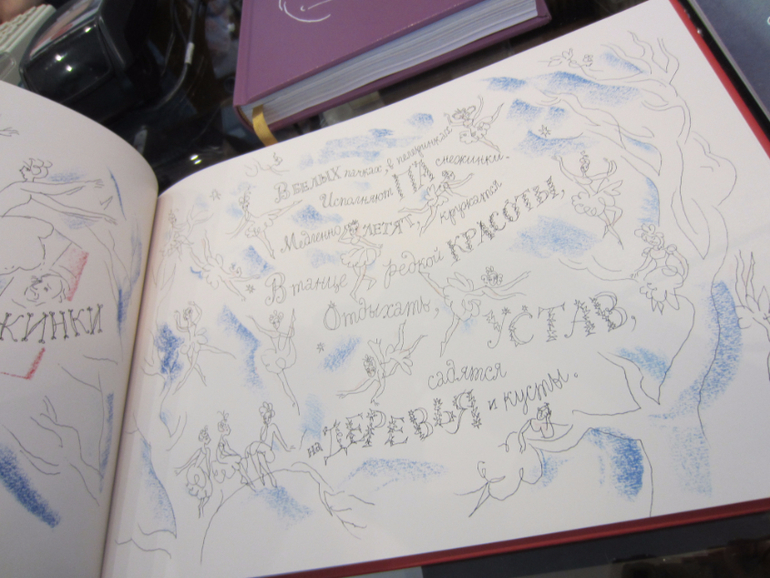 ЖИНКИ
В БЕЛЫХ пачках, в пелеринках
Исполняют ПА снежинки.
Медленно ЛЕТЯТ, кружатся
В танце редкой КРАСОТЫ,
Отдыхать, УСТАВ,
садятся
на ДЕРЕВЬЯ и кусты.